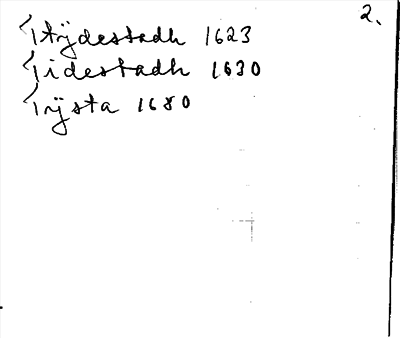 Ttijdestadh 1623
Tidestadh 1630
Tijsta 1680
2.